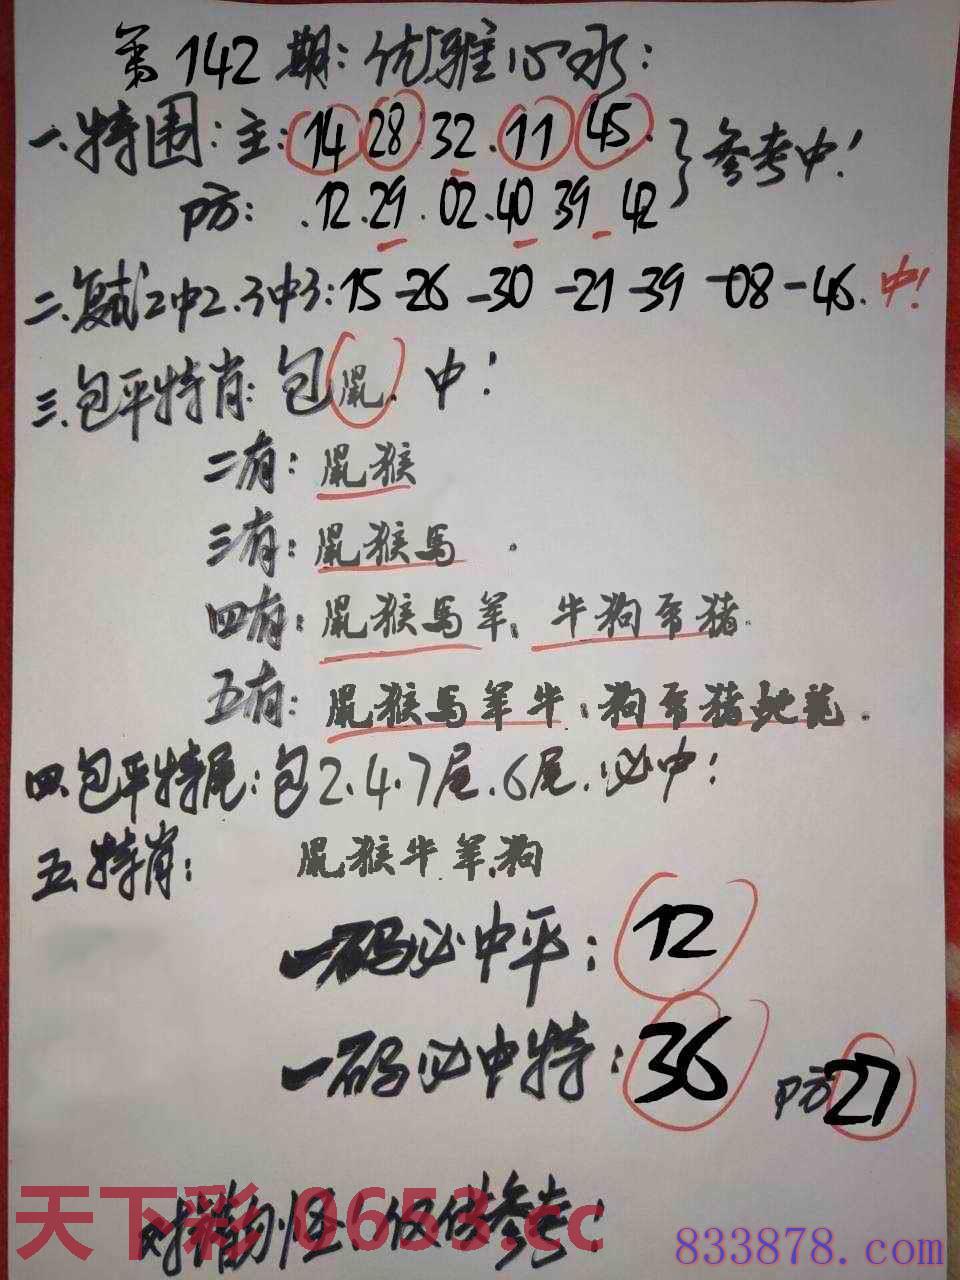 第142期:优雅心水:
一.特围:主:14 28 32.11 45.
防:.12.29.02.40 39 42
}参考中!
二.复试2中2.3中3:15-26-30-21-39-08-46.中!
三.包平特肖:包鼠.中!
二有:鼠猴
三有:鼠猴马.
四有:鼠猴马羊;牛狗 猪.
五有:鼠猴马羊牛;狗 猪蛇龙.
四.包平特尾:包2.4.7尾.6尾.必中!
五.特肖:鼠猴牛羊.狗
一码必中平:12
一码必中特:36 防27
料 勿怪:仅供参考!
天下彩 0653.cc
833878.com